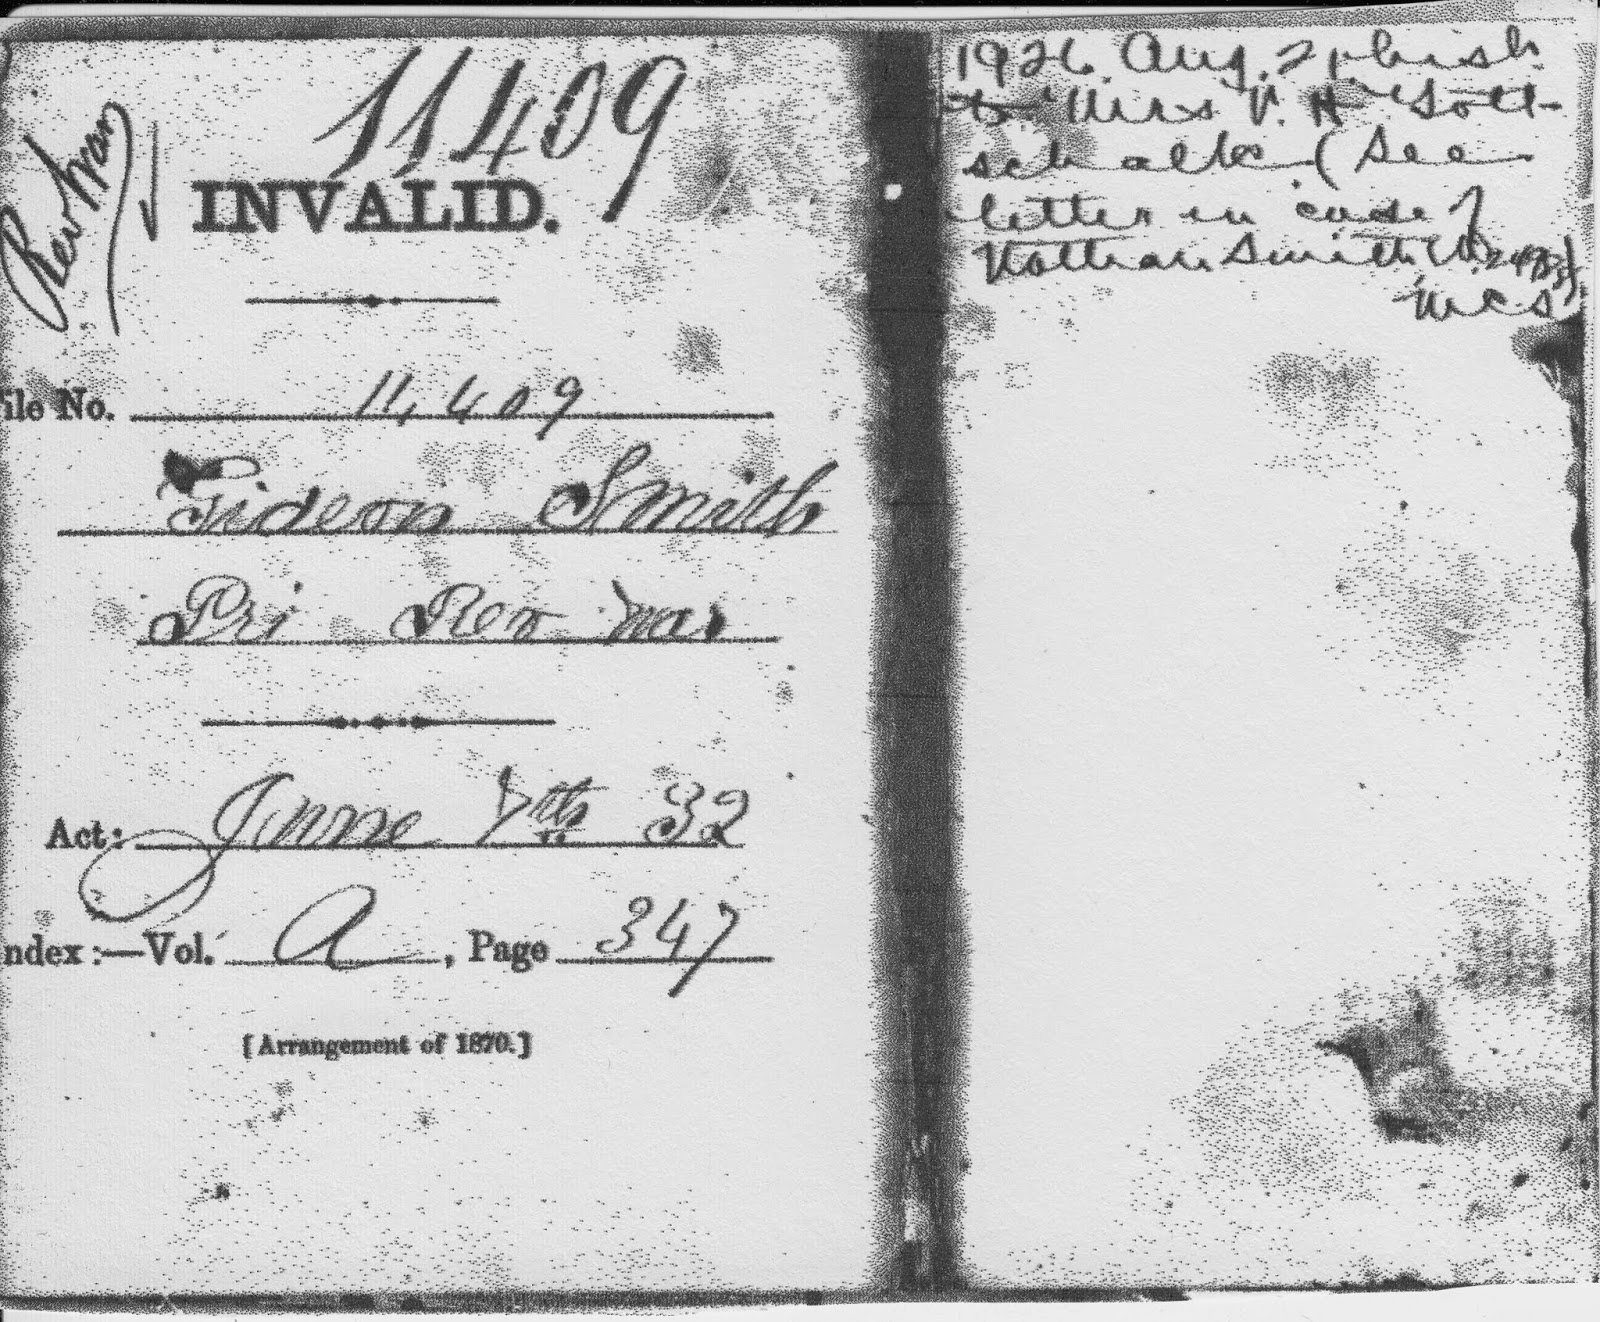 11409
Rev War
INVALID.
File No. 11,409
Gideon Smith
Pri Rev War
Act: June 7th 32
Index:—Vol. A, Page 347
[Arrangement of 1870.]
1926 Aug. 2 hist
to Mrs V. H. Gott-
schalk. (See
letter in case of
Nathan Smith W.
MCS